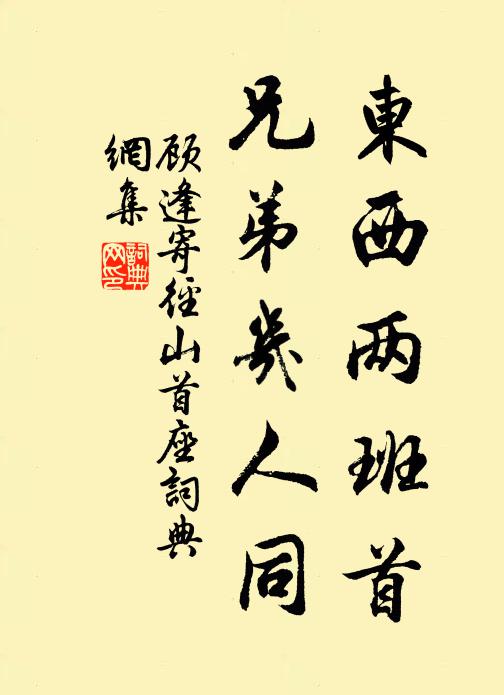 東西两班首
兄弟幾人同
顾逢寄徑山首座詞典
網集
詞典网印